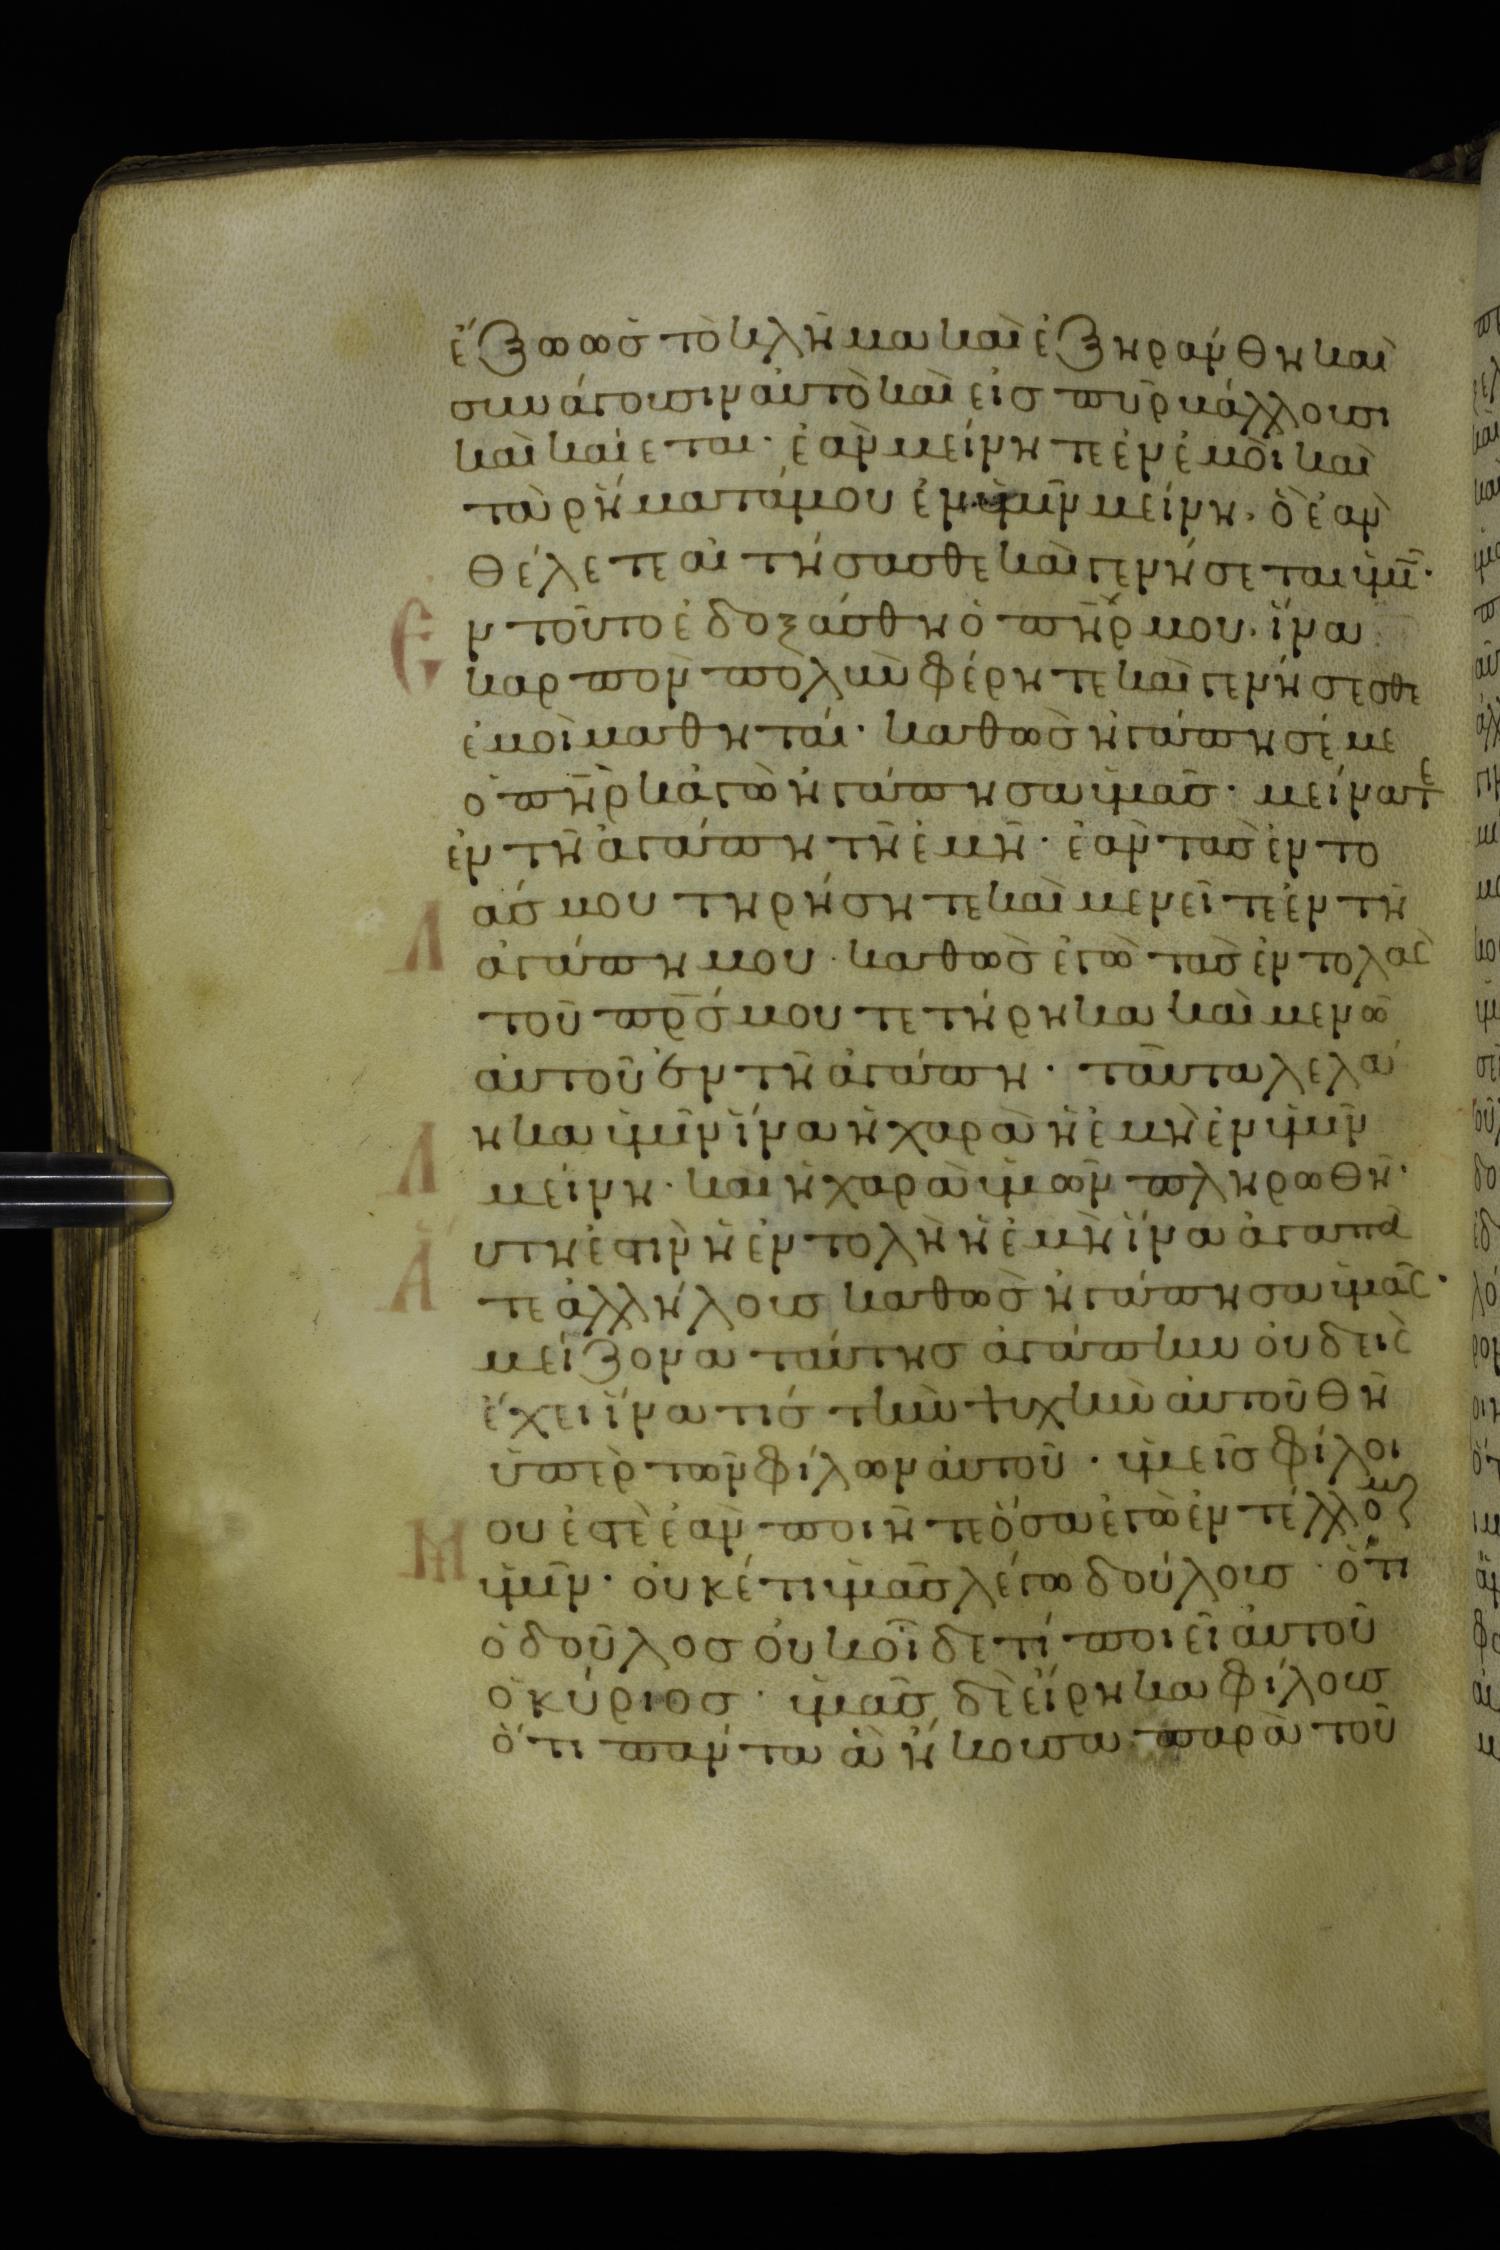 ἔξω ὡς τὸ κλῆμα καὶ ἐξηράνθη καὶ
συνάγουσιν αὐτὸ καὶ εἰς πῦρ βάλλουσι
καὶ καίεται· ἐὰν μείνητε ἐν ἐμοὶ καὶ
τὰ ῥήματά μου ἐν ὑμῖν μείνη· ὃ ἐὰν
θέλετε αἰτήσασθε καὶ γενήσεται ὑμῖν·
Ἐν τοῦτο ἐδοξάσθη ὁ π̅η̅ρ̅ μου· ἵνα
καρπὸν πολὺν φέρητε καὶ γενήσεσθε
ἐμοὶ μαθηταί· καθὼς ἠγάπησέ με
ὁ π̅η̅ρ̅ κἀγὼ ἠγάπησα ὑμᾶς· μείνατε
ἐν τῆ ἀγάπη τῆ ἐμῆ· ἐὰν τὰς ἐντο
λάς μου τηρήσητε καὶ μενεῖτε ἐν τῆ
ἀγάπη μου· καθὼς ἐγὼ τὰς ἐντολὰς
τοῦ π̅ρ̅ς̅ μου τετήρηκα καὶ μενῶ
αὐτοῦ ἐν τῆ ἀγάπη· ταῦτα λελά
ληκα ὑμῖν ἵνα ἡ χαρὰ ἡ ἐμὴ ἐν ὑμῖν
μείνη· καὶ ἡ χαρὰ ὑμῶν πληρωθῆ·
Αὕτη ἐστὶν ἡ ἐντολὴ ἡ ἐμὴ ἵνα ἀγαπᾶ
τε ἀλλήλους καθὼς ἠγάπησα ὑμᾶς·
μείζονα ταύτης ἀγάπην οὐδεὶς
ἔχει ἵνα τις τὴν ψυχὴν αὐτοῦ θῆ
ὑπὲρ τῶν φίλων αὐτοῦ· ὑμεῖς φίλοι
Μου ἐστὲ ἐὰν ποιῆτε ὅσα ἐγὼ ἐντέλλομαι
ὑμῖν· οὐκέτι ὑμᾶς λέγω δούλους· ὅτι
ὁ δοῦλος οὐκ οἶδε τί ποιεῖ αὐτοῦ
ὁ κύριος· ὑμᾶς δὲ εἴρηκα φίλους
ὅτι πάντα ἃ ἤκουσα παρὰ τοῦ